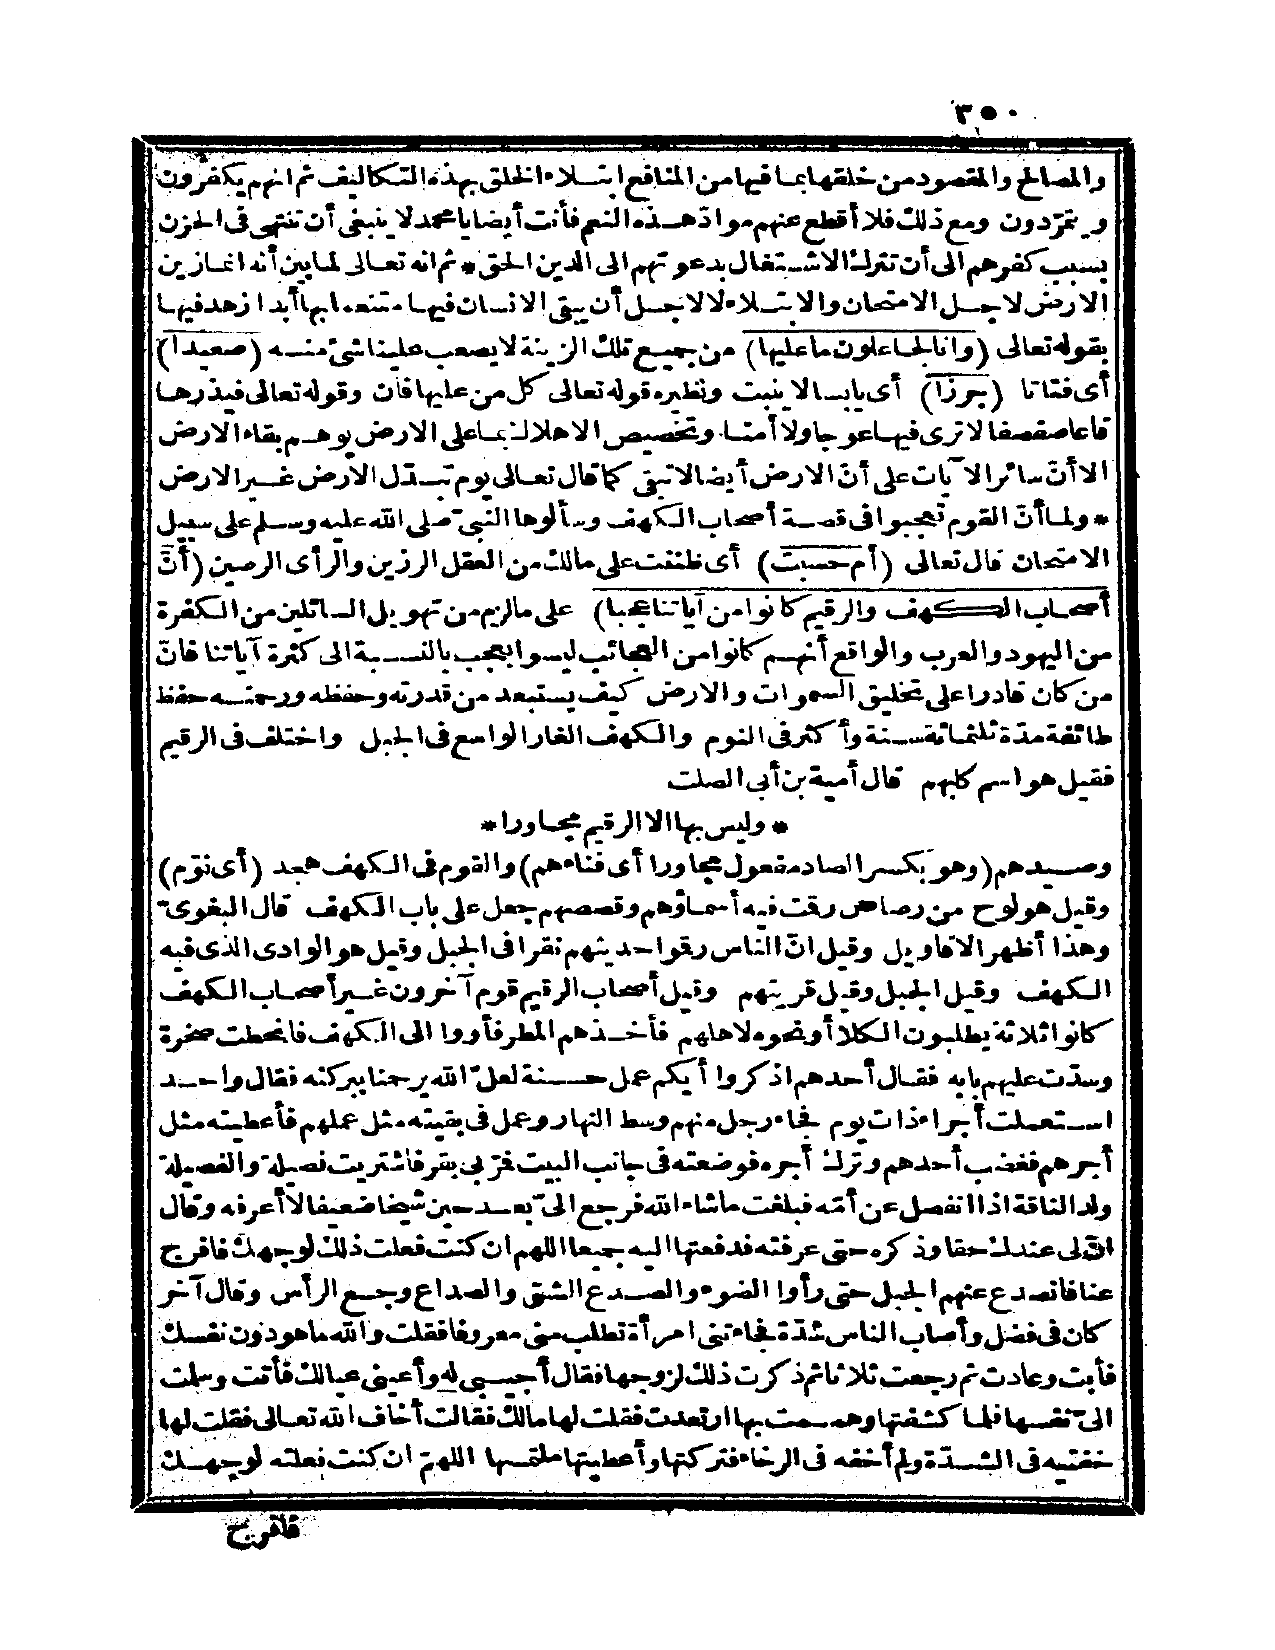 ٣٥٠
والمصالح والمقصود من خلقها بما فيها من المنافع ابتلاء الخلق بهذه التكاليف ثم انهم يكفرون
ويتمردون ومع ذلك فلا أقطع عنهم مواد هذه النعم فأنت أيضا يا محمد لا ينبغي أن تنتهى فى الحزن
بسبب كفرهم الى أن تترك الاشتغال بدعوتهم الى الدين الحق * ثم انه تعالى لما بين أنه انما زين
الارض لاجل الامتحان والابتلاء لا لاجل أن يبقى الانسان فيها متنعما بها أبدا زهد فيها
بقوله تعالى (وانا لجاعلون ما عليها) من جميع تلك الزينة لا يصعب علينا شئ منه (صعيدا)
أى فتاتا (جرزا) أى يابسا لا ينبت ونظيره قوله تعالى كل من عليها فان وقوله تعالى فيذرها
قاعا صفصفا لا ترى فيها عوجا ولا أمتا وتخصيص الاهلاك بما على الارض يوهم بقاء الارض
الا أنّ سائر الآيات على أنّ الارض أيضا لا تبقى كما قال تعالى يوم تبدّل الارض غير الارض
* ولما أنّ القوم تعجبوا فى قصة أصحاب الكهف وسألوها النبىّ صلى الله عليه وسلم على سبيل
الامتحان قال تعالى (أم حسبت) أى ظننت على مالك من العقل الرزين والرأى الرصين (أنّ
أصحاب الكهف والرقيم كانوا من آياتنا عجبا) على مالزم من تهويل السائلين من الكفرة
من اليهود والعرب والواقع أنهم كانوا من العجائب ليسوا بعجب بالنسبة الى كثرة آياتنا فانّ
من كان قادرا على تخليق السموات والارض كيف يستبعد من قدرته وحفظه ورحمته حفظ
طائفة مدة ثلثمائة سنة وأكثر فى النوم والكهف الغار الواسع فى الجبل واختلف فى الرقيم
فقيل هو اسم كلبهم قال أمية بن أبى الصلت
* وليس بها الا الرقيم مجاورا *
وصيدهم (وهو بكسر الصاد مفعول مجاورا أى فناءهم) والقوم فى الكهف هجد (أى نوّم)
وقيل هو لوح من رصاص رقمت فيه أسماؤهم وقصصهم جعل على باب الكهف قال البغوىّ
وهذا أظهر الاقاويل وقيل انّ الناس رقوا حديثهم نقرا فى الجبل وقيل هو الوادى الذى فيه
الكهف وقيل الجبل وقيل قريتهم وقيل أصحاب الرقيم قوم آخرون غير أصحاب الكهف
كانوا ثلاثة يطلبون الكلا أو نحوه لاهلهم فأخذهم المطر فأووا الى الكهف فانحطت صخرة
وسدّت عليهم بابه فقال أحدهم اذكروا أيكم عمل حسنة لعلّ الله يرحمنا ببركته فقال واحد
استعملت أجراء ذات يوم فجاء رجل منهم وسط النهار وعمل فى بقيته مثل عملهم فأعطيته مثل
أجرهم فغضب أحدهم وترك أجره فوضعته فى جانب البيت فمرّ بى بقر فاشتريت فصيلة والفصيلة
ولد الناقة اذا انفصل عن أمّه فبلغت ما شاء الله فرجع الىّ بعد حين شيخا ضعيفا لا أعرفه وقال
انّ لى عندك حقا وذكره حتى عرفته فدفعتها اليه جميعا اللهم ان كنت فعلت ذلك لوجهك فافرج
عنا فانصدع عنهم الجبل حتى رأوا الضوء والصدع الشق والصداع وجع الرأس وقال آخر
كان فىّ فضل وأصاب الناس شدّة فجاءتنى امرأة تطلب منى معروفا فقلت والله ما هو دون نفسك
فأبت وعادت ثم رجعت ثلاثا ثم ذكرت ذلك لزوجها فقال أجيبى له وأعينى عيالك فأتت وسلمت
الىّ نفسها فلما كشفتها وهممت بها ارتعدت فقلت لها مالك فقالت أخاف الله تعالى فقلت لها
خفتيه فى الشدّة ولم أخفه فى الرخاء فتركتها وأعطيتها ملتمسها اللهمّ ان كنت فعلته لوجهك
فافرج